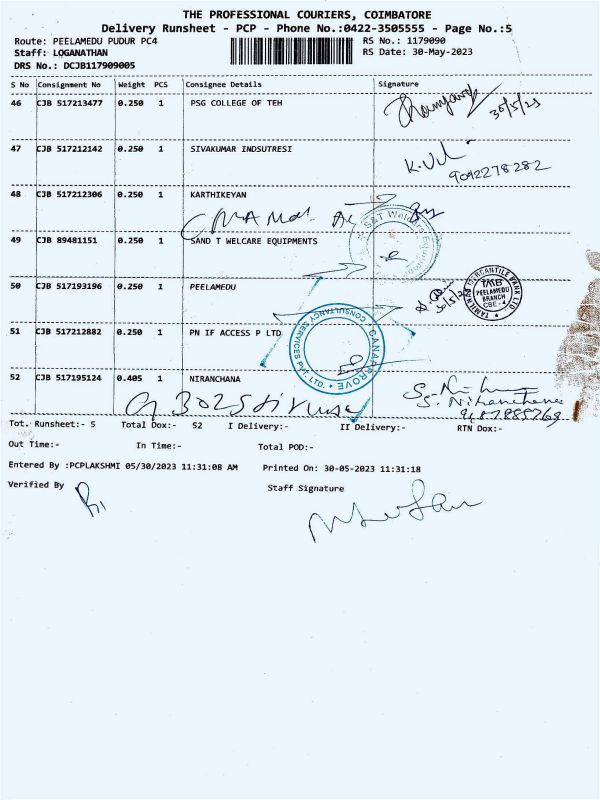 THE PROFESSIONAL COURIERS, COIMBATORE
Delivery Runsheet - PCP - Phone No.:0422-3505555 - Page No.:5
Route: PEELAMEDU PUDUR PC4 RS No.: 1179090
Staff: LOGANATHAN RS Date: 30-May-2023
DRS No.: DCJB117909005
S No Consignment No Weight PCS Consignee Details Signature
46 CJB 517213477 0.250 1 PSG COLLEGE OF TEH
30/5/23
47 CJB 517212142 0.250 1 SIVAKUMAR INDSUTRESI
9042278282
48 CJB 517212306 0.250 1 KARTHIKEYAN
49 CJB 89481151 0.250 1 SAND T WELCARE EQUIPMENTS
50 CJB 517193196 0.250 1 PEELAMEDU
TAMILNAD MERCANTILE BANK LTD.
TMB
PEELAMEDU
BRANCH
CBE - 4
51 CJB 517212882 0.250 1 PN IF ACCESS P LTD
CANAPPROVE CONSULTANCY SERVICES PVT. LTD.
52 CJB 517195124 0.405 1 NIRANCHANA
S. Niranchana
Tot. Runsheet:- 5 Total Dox:- 52 I Delivery:- II Delivery:- RTN Dox:-
Out Time:- In Time:- Total POD:-
Entered By :PCPLAKSHMI 05/30/2023 11:31:08 AM Printed On: 30-05-2023 11:31:18
Verified By Staff Signature